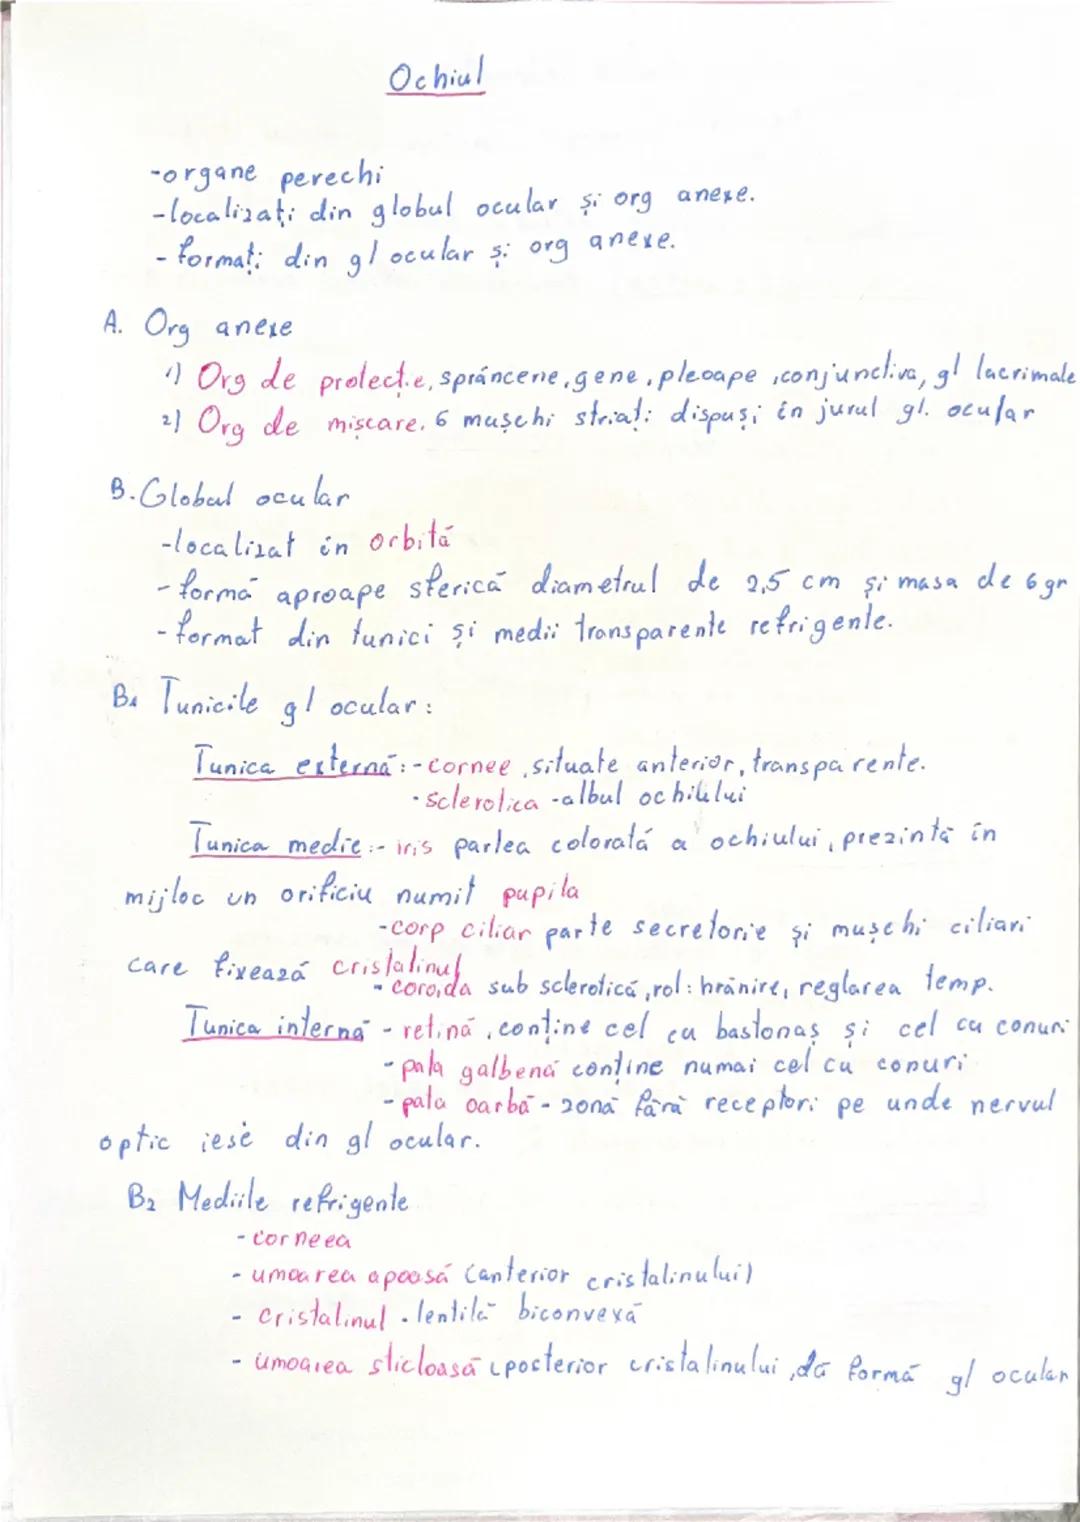 Ochiul
-organe perechi
-localizați din globul ocular și org anexe.
- formați din gl ocular și org anexe.
A. Org anexe
1) Org de protecție, sprâncene, gene, pleoape, conjunctiva, gl lacrimale
2) Org de mișcare. 6 mușchi striați dispuși în jurul gl. ocular
B. Globul ocular
-localizat în orbită
- formă aproape sferică diametrul de 2,5 cm și masa de 6 gr
- format din tunici și medii transparente refrigente.
B1 Tunicile gl ocular:
Tunica externă:- cornee, situate anterior, transparente.
- sclerotica - albul ochiului
Tunica medie:- iris partea colorată a ochiului, prezintă în
mijloc un orificiu numit pupila
-corp ciliar parte secretorie și mușchi ciliari
care fixează cristalinul
- coroida sub sclerotică, rol: hrănire, reglarea temp.
Tunica internă - retină, conține cel cu bastonaș și cel cu conuri
- pata galbenă conține numai cel cu conuri
- pata oarbă - zonă fără receptori pe unde nervul
optic iese din gl ocular.
B2 Mediile refrigente
- corneea
- umoarea apoasă (anterior cristalinului)
- cristalinul - lentilă biconvexă
- umoarea sticloasă (posterior cristalinului, dă formă gl ocular